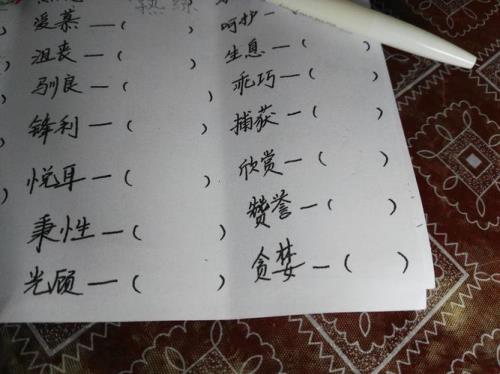 熟练
爱慕—（ ） 呵护—
沮丧—（ ） 生息—（ ）
驯良—（ ） 乖巧—（ ）
锋利—（ ） 捕获—（ ）
悦耳—（ ） 欣赏—（ ）
秉性—（ ） 赞誉—（ ）
光顾—（ ） 贪婪—（ ）